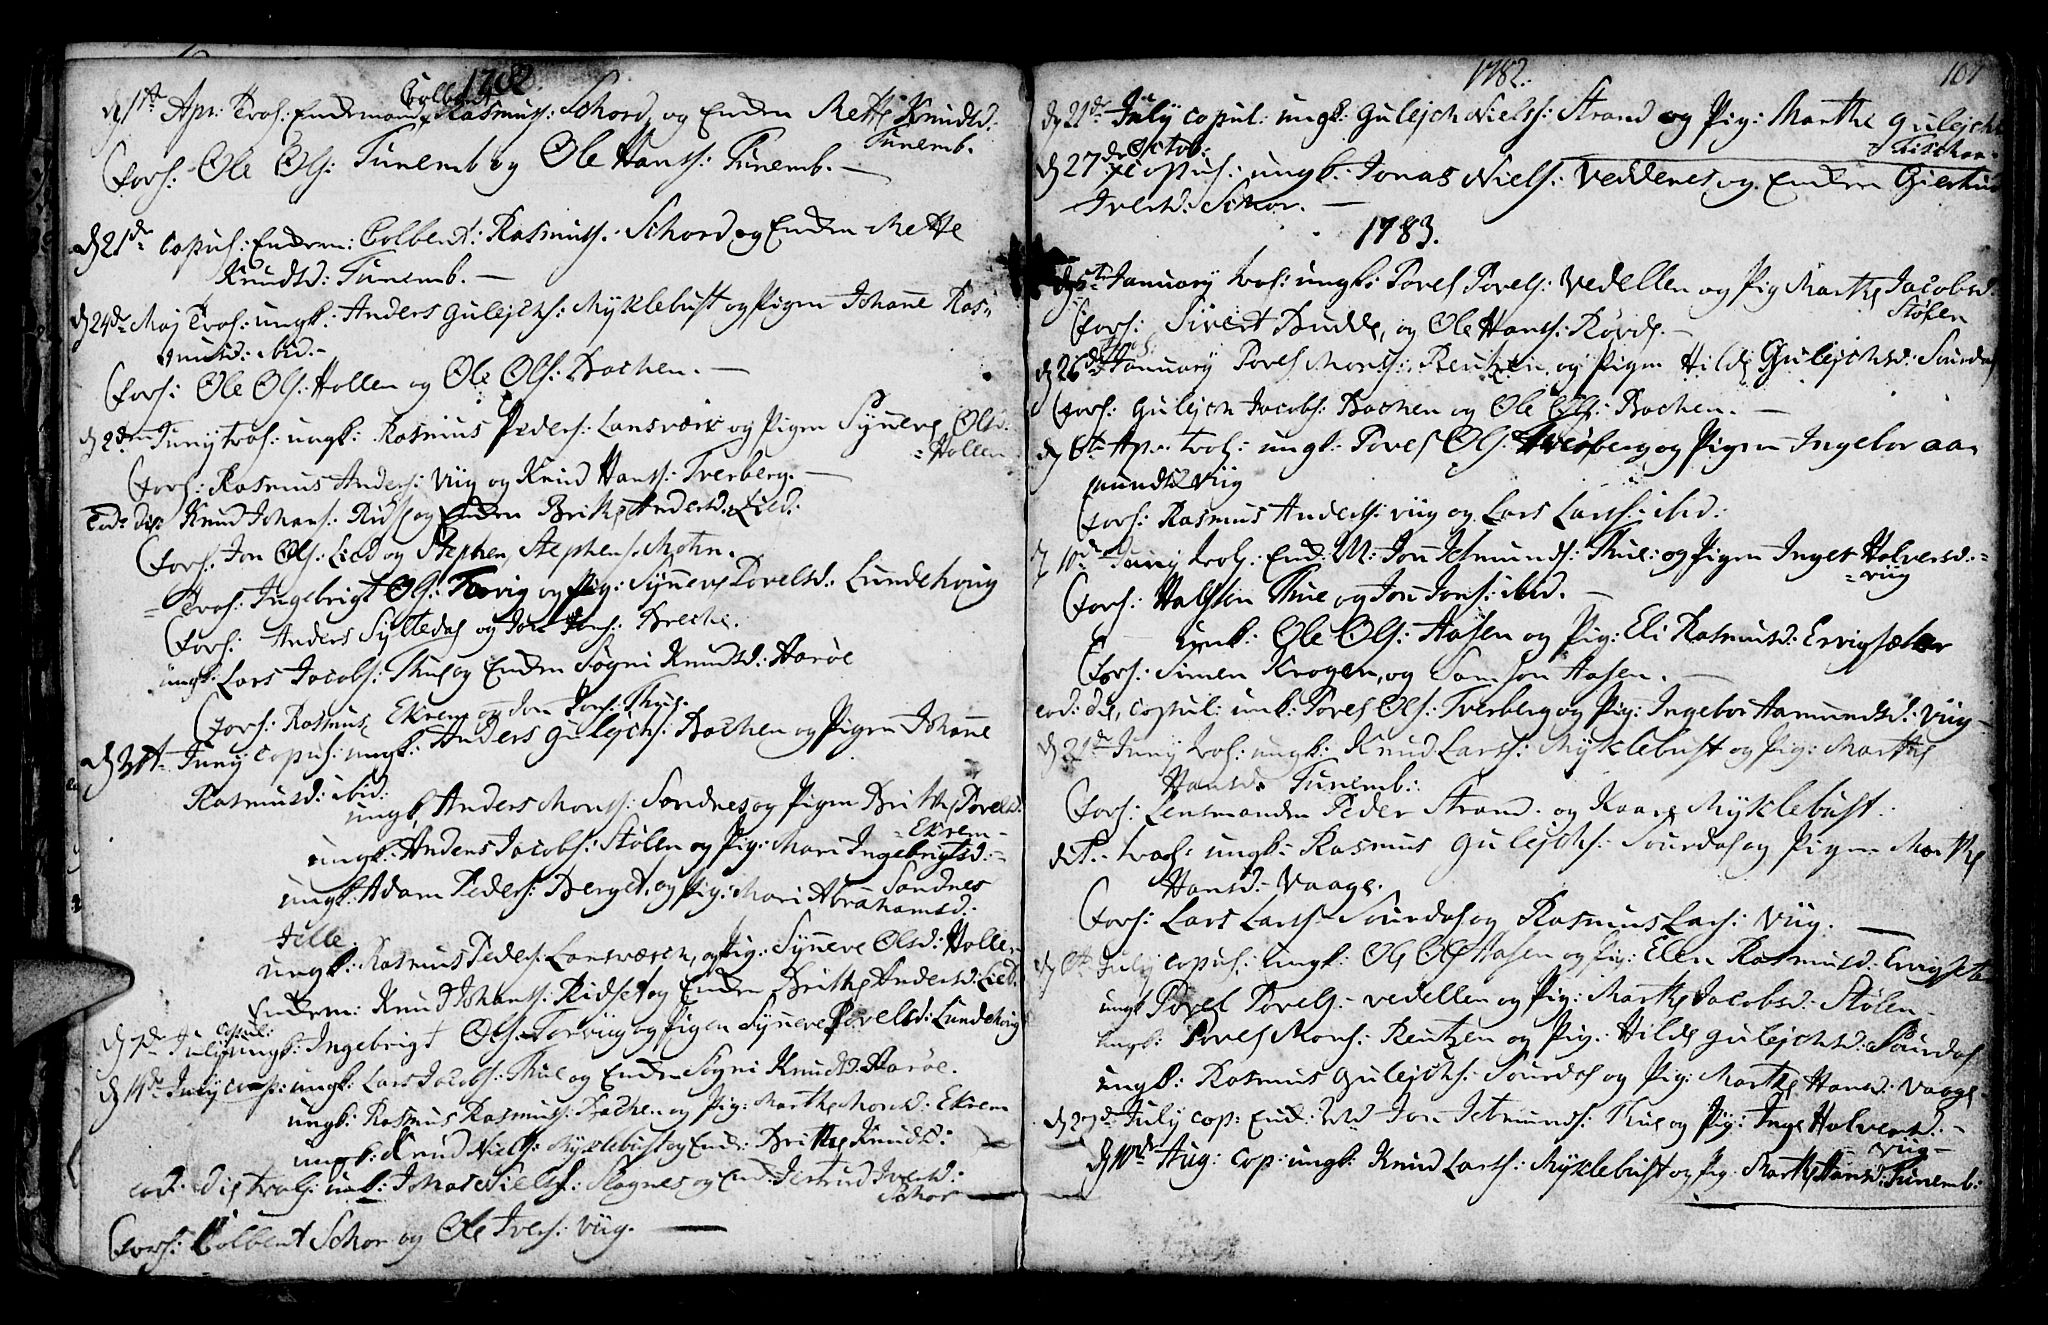 1782.
d 1st Apr: Trol: Enkemand Colbent Rasmus: Schord, og Enken Mette Knudsd:
Tunemb.
Cfors: Ole Ols: Tunemb og Ole Hans: Tunemb. —
d 21de copul: Enkem: Colbent: Rasmus: Schord og Enken Mette
Knudsd: Tunemb. —
d 24de Maj Trol: ungk: Anders Gulejchs: Myklebust og Pigen Johanne Ras=
musd: ibid. —
Cfors: Ole Ols: Hollen og Ole Ols: Bachen. —
d 2den Junij trol: ungk: Rasmus Peders: Lansværk og Pigen Synneve Olsd:
= Hollen
Cfors: Rasmus Anders: Viig og Knud Hans: Tverberg. —
Eod: die Knud Johans: Ridse og Enken Brithe Andersd: Lied:
Cfors: Jon Ols: Lied og Stephen Stephens: Mohn.
= Trol: Ingebrigt Ols: Torvig og Pig: Synneve Povelsd: Lundehoug
Cfors: Anders Syltedal og Jon Jons: Breche.
ungk: Lars Jacobs: Thue og Enken Søgni Knudsd: Harøe
Cfors: Rasmus Ekrem og Jon Jons: Thue.
d Junij copul: ungk: Anders Gulejchs: Bachen og Pigen Johanne
Rasmusd: ibid:
ungk: Anders Mons: Sandnes og Pigen Brithe Povelsd:
= Ekrem —
ungk: Anders Jacobs: Stølen og Pig: Mari Ingebrigtsd: =
Sandnes
ungk: Adam Peders: Berget, og Pig: Mari Abrahamsd:
Hille.
ungk: Rasmus Peders: Lansværch, og Pig: Synneve Olsd: Hollen
Enkem: Knud Johans: Ridset og Enken Brithe Andersd: Lied.
d 7de Julij copul: ungk: Ingebrigt Ols: Torviig og Pigen Synneve Povelsd: Lundehoug
d 14de Julij cop: ungk: Lars Jacobs: Thue og Enken Søgni Knudsd: Harøe.
ungk: Rasmus Rasmus: Bachen og Pig: Marthe Monsd: Ekrem
ungk: Knud Niels: Myklebust og Enk: Brithe Knudsd:
eod: die trol: unk: Jonas Niels: og Enk: Jertrud Iversd:
Schor
Cfors: Colbent Schor og Ole Ivers: Viig. —
1782. 107
d 21de July copul: ungk: Gulejch Niels: Strand og Pig: Marthe Gulejchsd
d 27de Octob: copul: ungk: Jonas Niels: Veddenes og Enken Giertrud
Iversd: Schor. —
1783.
d 5te January trol: ungk: Povel Povels: Vedellen og Pig Marthe Jacobsd:
Stølen
Cfors: Sivert Budde, og Ole Hans: Røvde. —
d 26de January Povel Mons: Reutzen, og Pigen Hilde Gulejchsd: Sourdal
Cfors: Gulejch Jacobs: Bachen og Ole Ols: Bachen. —
d 6te Apr: trol: ungk: Povel Ols: Tverberg og Pigen Ingebor aa=
mundsd Viig
Cfors: Rasmus Anders: Viig og Lars Lars: ibid:
d 10de Junij trol: Enk: M: Jon Istmunds: Thue: og Pigen Inger Halversd: =
= Viig
Cfors: Halsten Thue og Jon Jons: ibid. —
unk: Ole Ols: Hasen og Pig: Eli Rasmusd: Ervigsæter
Cfors: Simen Krogen, og Samson Hasen. —
eod: die, copul: unk: Povel Ols: Tverberg og Pig: Ingebor Hamundsd: Viig —
d 21de Junij trol: ungk: Knud Lars: Myklebust og Pig: Marthe
Hansd: Tunemb:
Cfors: Lensmanden Peder Strand. og Kaare Myklebust.
dit: trol: ungk: Rasmus Gulejchs: Sourdal og Pigen Marthe
Hansd: Vaage.
Cfors: Lars Lars: Sourdal og Rasmus Lars: Viig. —
d 6te July copul: ungk: Ole Ols Hasen og Pig: Elen Rasmusd: Ervigsetr
ungk Povel Povels: Vedellen og Pig: Marthe Jacobsd: Stølen —
ungk: Povel Mons: Reutzen og Pig: Hilde Gulejchsd: Sourdal
ungk: Rasmus Gulejchs: Sourdal og Pig: Marthe Hansd: Vaage.
d 27de July cop: Enk: M Jon Istmunds: Thue og Pig: Inge Halversd: —
Viig —
d 10de Aug: cop: ungk: Knud Lars: Myklebust og Pig: Marthe Hansd: Tunemb: